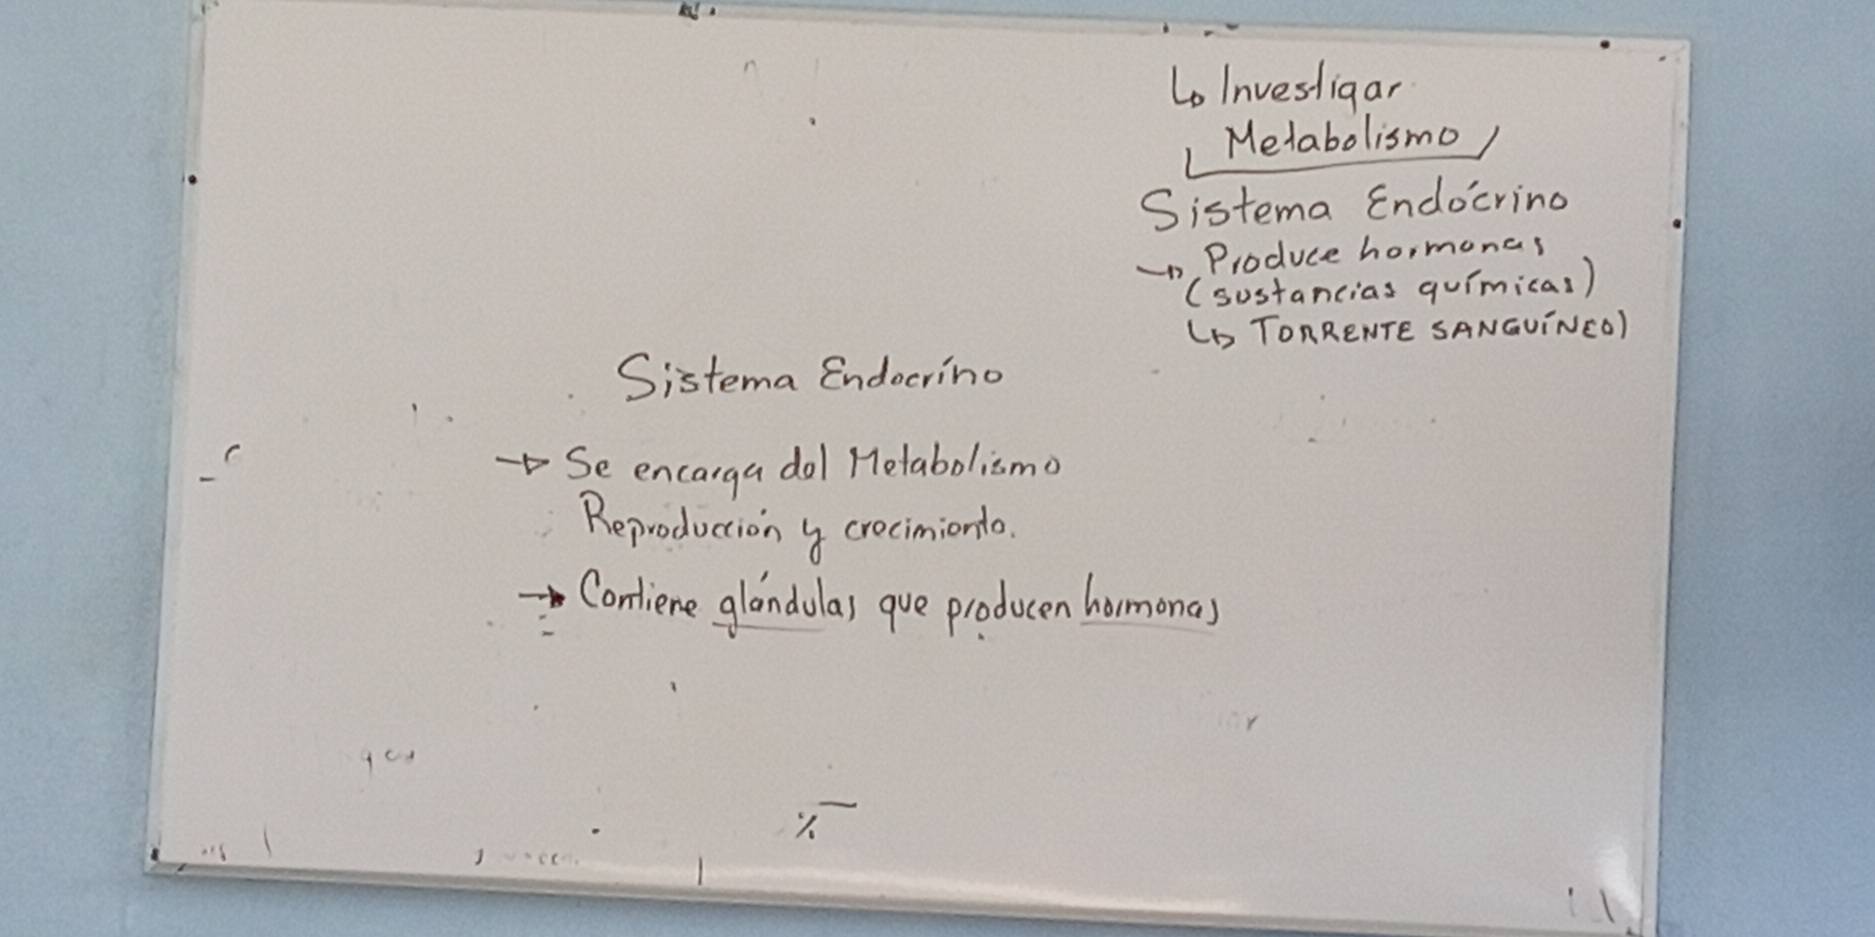 ↳ Investigar
Metabolismo
Sistema Endócrino
→ Produce hormonas
(sustancias químicas)
↳ TORRENTE SANGUÍNEO)
Sistema Endocríno
→ Se encarga del Metabolismo
Reproducción y crecimiento.
→ Contiene glándulas que producen hormonas